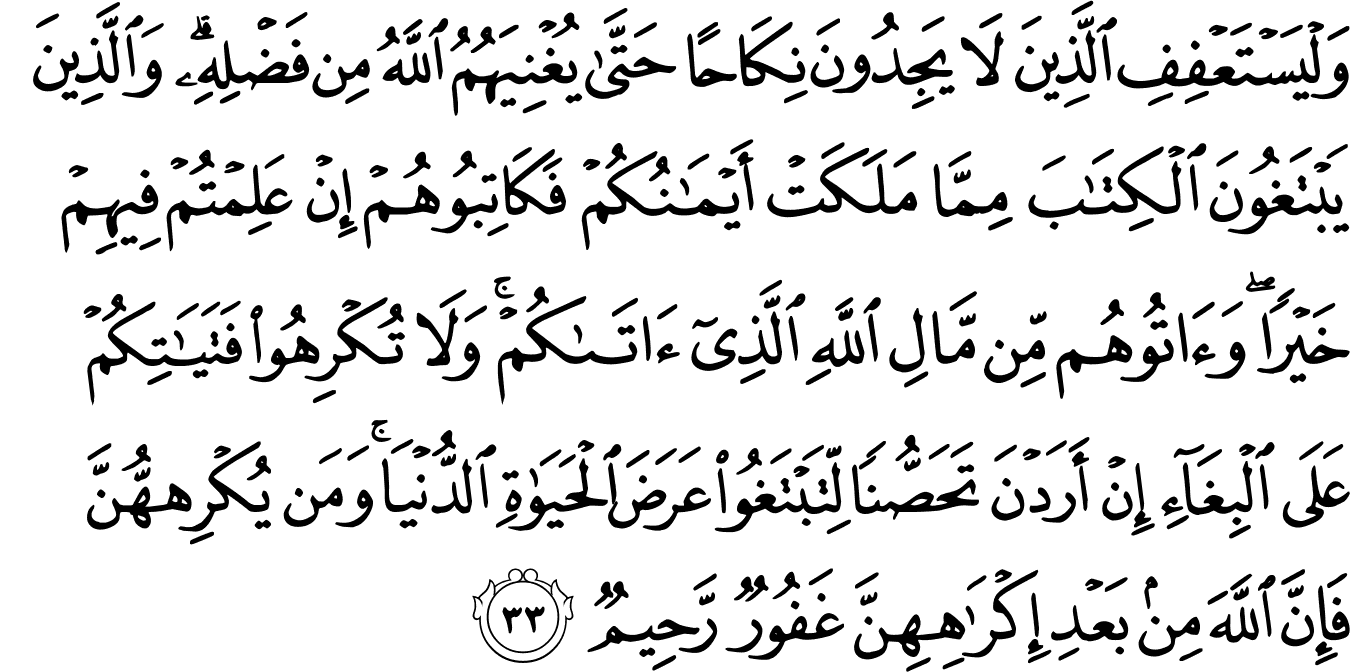 وَلۡيَسۡتَعۡفِفِ ٱلَّذِينَ لَا يَجِدُونَ نِكَاحًا حَتَّىٰ يُغۡنِيَهُمُ ٱللَّهُ مِن فَضۡلِهِۦۗ وَٱلَّذِينَ
يَبۡتَغُونَ ٱلۡكِتَٰبَ مِمَّا مَلَكَتۡ أَيۡمَٰنُكُمۡ فَكَاتِبُوهُمۡ إِنۡ عَلِمۡتُمۡ فِيهِمۡ
خَيۡرٗاۖ وَءَاتُوهُم مِّن مَّالِ ٱللَّهِ ٱلَّذِيٓ ءَاتَىٰكُمۡۚ وَلَا تُكۡرِهُواْ فَتَيَٰتِكُمۡ
عَلَى ٱلۡبِغَآءِ إِنۡ أَرَدۡنَ تَحَصُّنٗا لِّتَبۡتَغُواْ عَرَضَ ٱلۡحَيَوٰةِ ٱلدُّنۡيَاۚ وَمَن يُكۡرِههُّنَّ
فَإِنَّ ٱللَّهَ مِنۢ بَعۡدِ إِكۡرَٰهِهِنَّ غَفُورٞ رَّحِيمٞ ٣٣